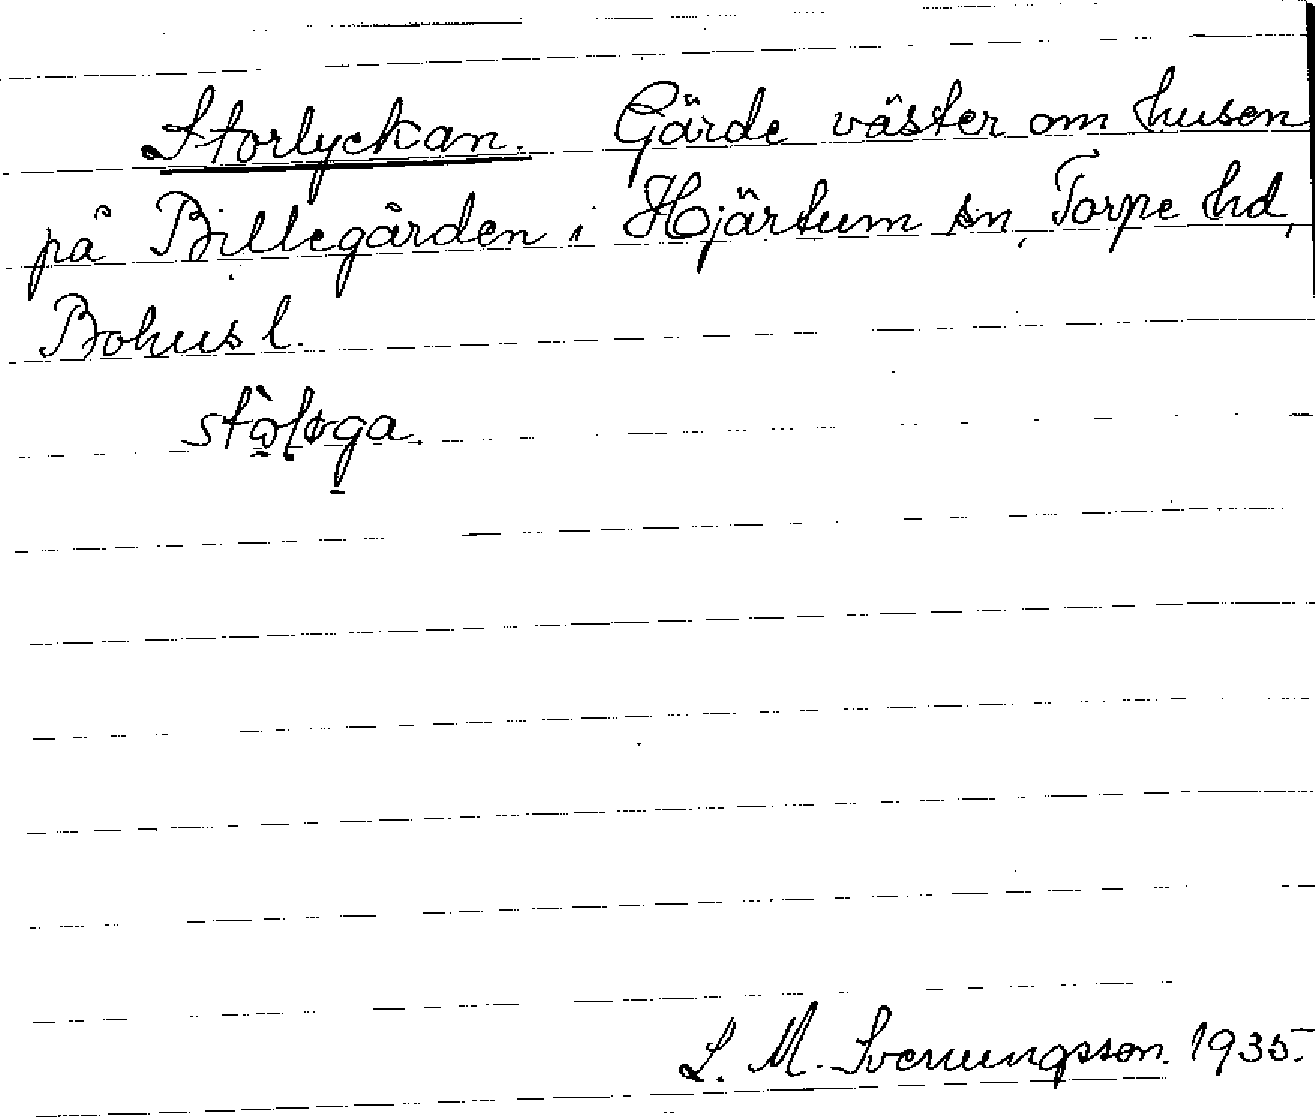 Storlyckan. Gärde väster om husen
på Billegården i Hjärtum sn, Torpe hd,
Bohusl.
L. M. Svenungsson. 1935.